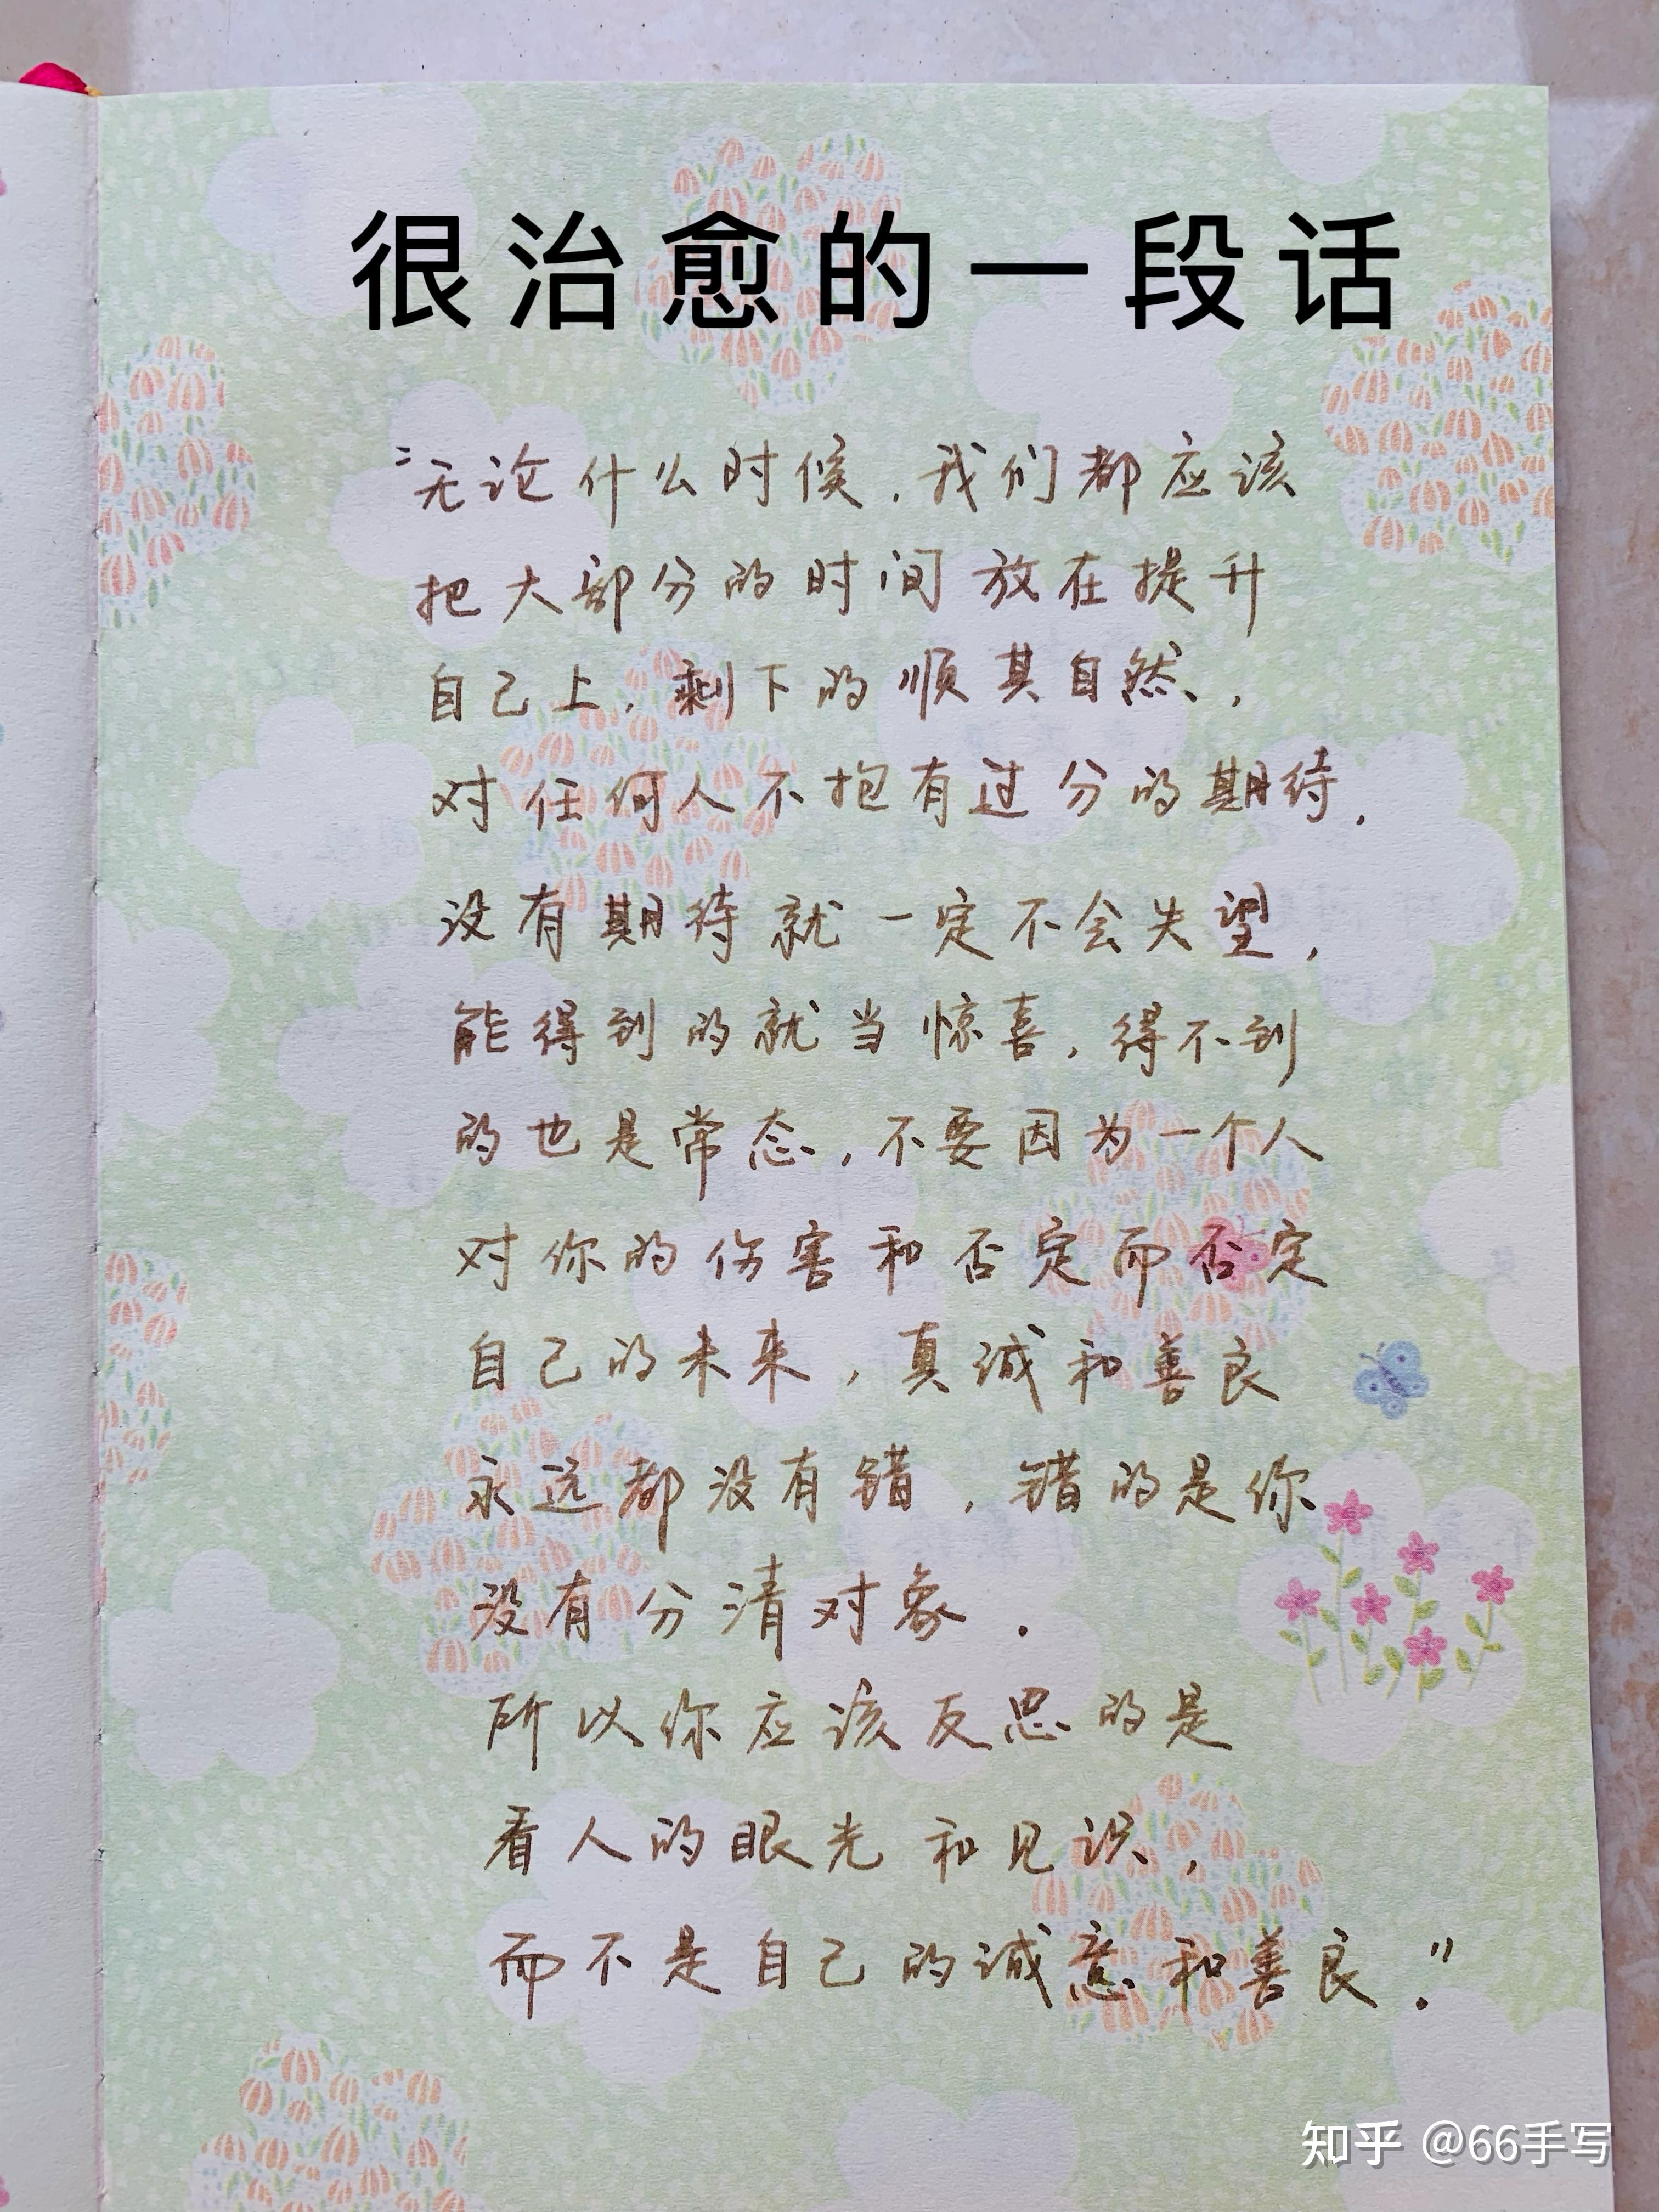 很治愈的一段话
“无论什么时候,我们都应该
把大部分的时间放在提升
自己上,剩下的顺其自然,
对任何人不抱有过分的期待,
没有期待就一定不会失望,
能得到的就当惊喜,得不到
的也是常态,不要因为一个人
对你的伤害和否定而否定
自己的未来,真诚和善良
永远都没有错,错的是你
没有分清对象.
所以你应该反思的是
看人的眼光和见识,
而不是自己的诚意和善良.”
知乎 @66手写